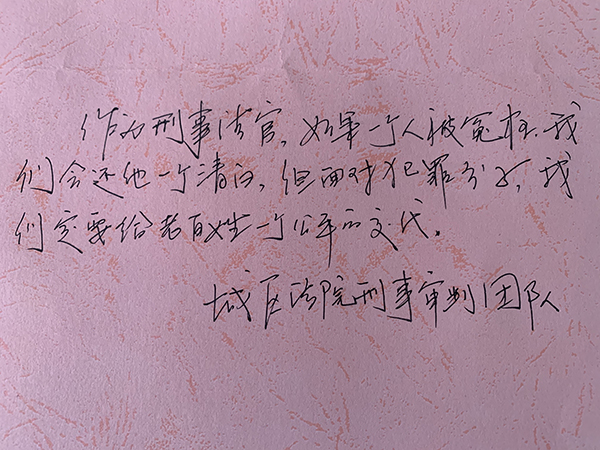 作为刑事法官，如果一个人被冤枉，我
们会还他一个清白，但面对犯罪分子，我
们定要给老百姓一个公平的交代。
城区法院刑事审判团队